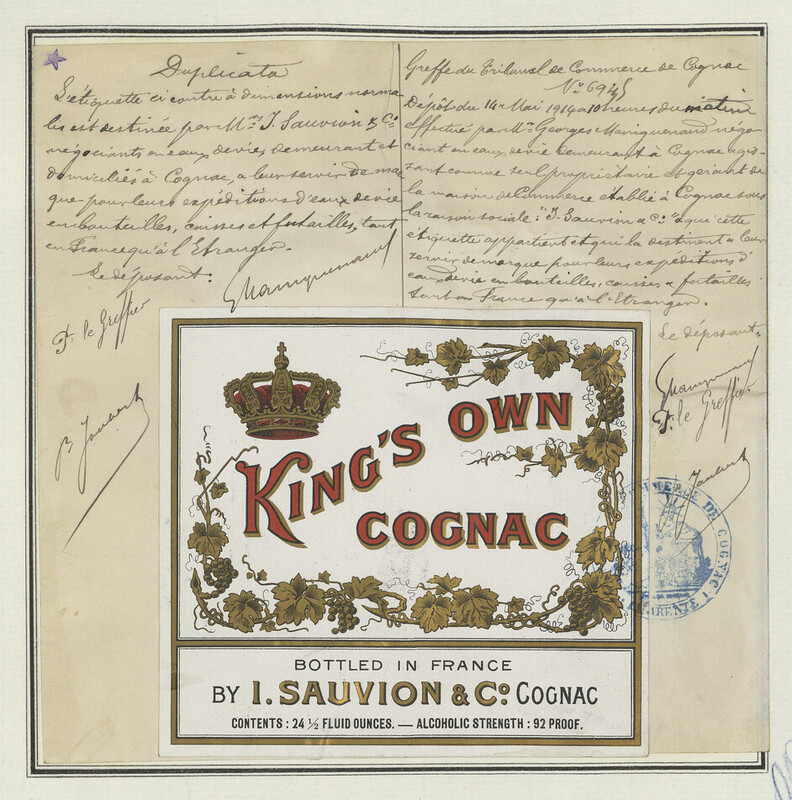 Duplicata
L'étiquette ci contre à dimensions norma
les est destinée par Mrs I. Sauvion & Co
négociants en eaux de vie, demeurant et
domiciliés à Cognac, a leur servir de mar
que pour leurs expéditions d'eaux de vie
en bouteilles, caisses et futailles, tant
en France qu'à l'Etranger.
Le déposant.
P. le Greffier
B Joubert
Greffe du Tribunal de Commerce de Cognac
No 6945
Dépôt du 14 Mai 1914 a 10 heures du matin
effectué par Mr Georges Maniquenand négo
ciant en eaux de vie demeurant à Cognac agis-
sant comme seul propriétaire et gérant de
la maison de Commerce établie à Cognac sous
la raison sociale: "I. Sauvion & Co" à qui cette
étiquette appartient et qui la destinent à leur
servir de marque pour leurs expéditions d'
eaux de vie en bouteilles, caisses & futailles
tant en France qu'à l'Etranger.
Le déposant
P. le Greffier
Joubert
KING'S OWN
COGNAC
BOTTLED IN FRANCE
BY I. SAUVION & Co COGNAC
CONTENTS : 24 ½ FLUID OUNCES. — ALCOHOLIC STRENGTH : 92 PROOF.
COMMERCE DE COGNAC
CHARENTE